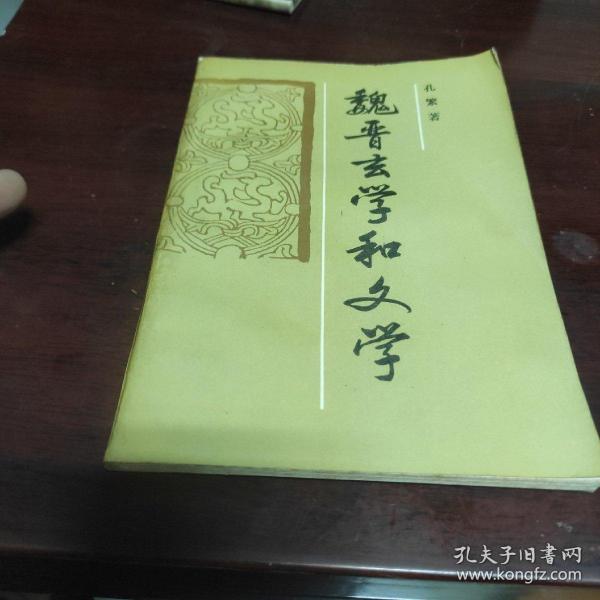 孔繁著
魏晋玄学和文学
孔夫子旧書网
www.kongfz.com